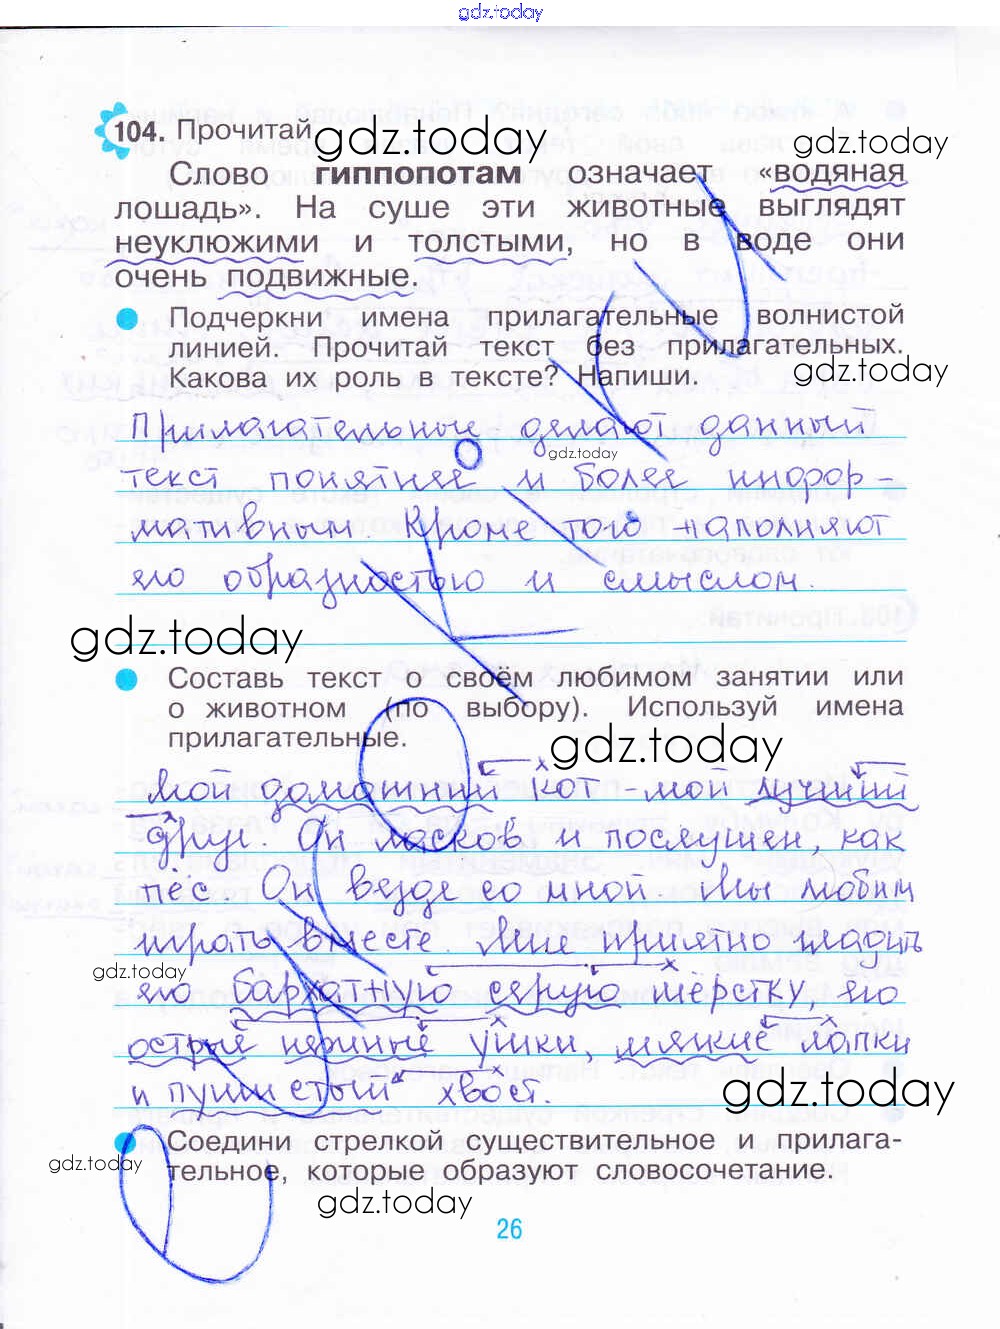 gdz.today
104. Прочитай
gdz.today
gdz.today
Слово гиппопотам означает «водяная
лошадь». На суше эти животные выглядят
неуклюжими и толстыми, но в воде они
очень подвижные.
Подчеркни имена прилагательные волнистой
линией. Прочитай текст без прилагательных.
Какова их роль в тексте? Напиши.
gdz.today
Прилагательные делают данный
gdz.today
текст понятнее и более инфор-
мативным. Кроме того наполняют
его образностью и смыслом.
gdz.today
Составь текст о своём любимом занятии или
о животном (по выбору). Используй имена
прилагательные.
gdz.today
Мой домашний кот – мой лучший
друг. Он ласков и послушен, как
пёс. Он везде со мной. Мы любим
играть вместе. Мне приятно гладить
gdz.today
его бархатную серую шёрстку, его
острые нежные ушки, мягкие лапки
и пушистый хвост.
gdz.today
Соедини стрелкой существительное и прилага-
gdz.today
тельное, которые образуют словосочетание.
gdz.today
26